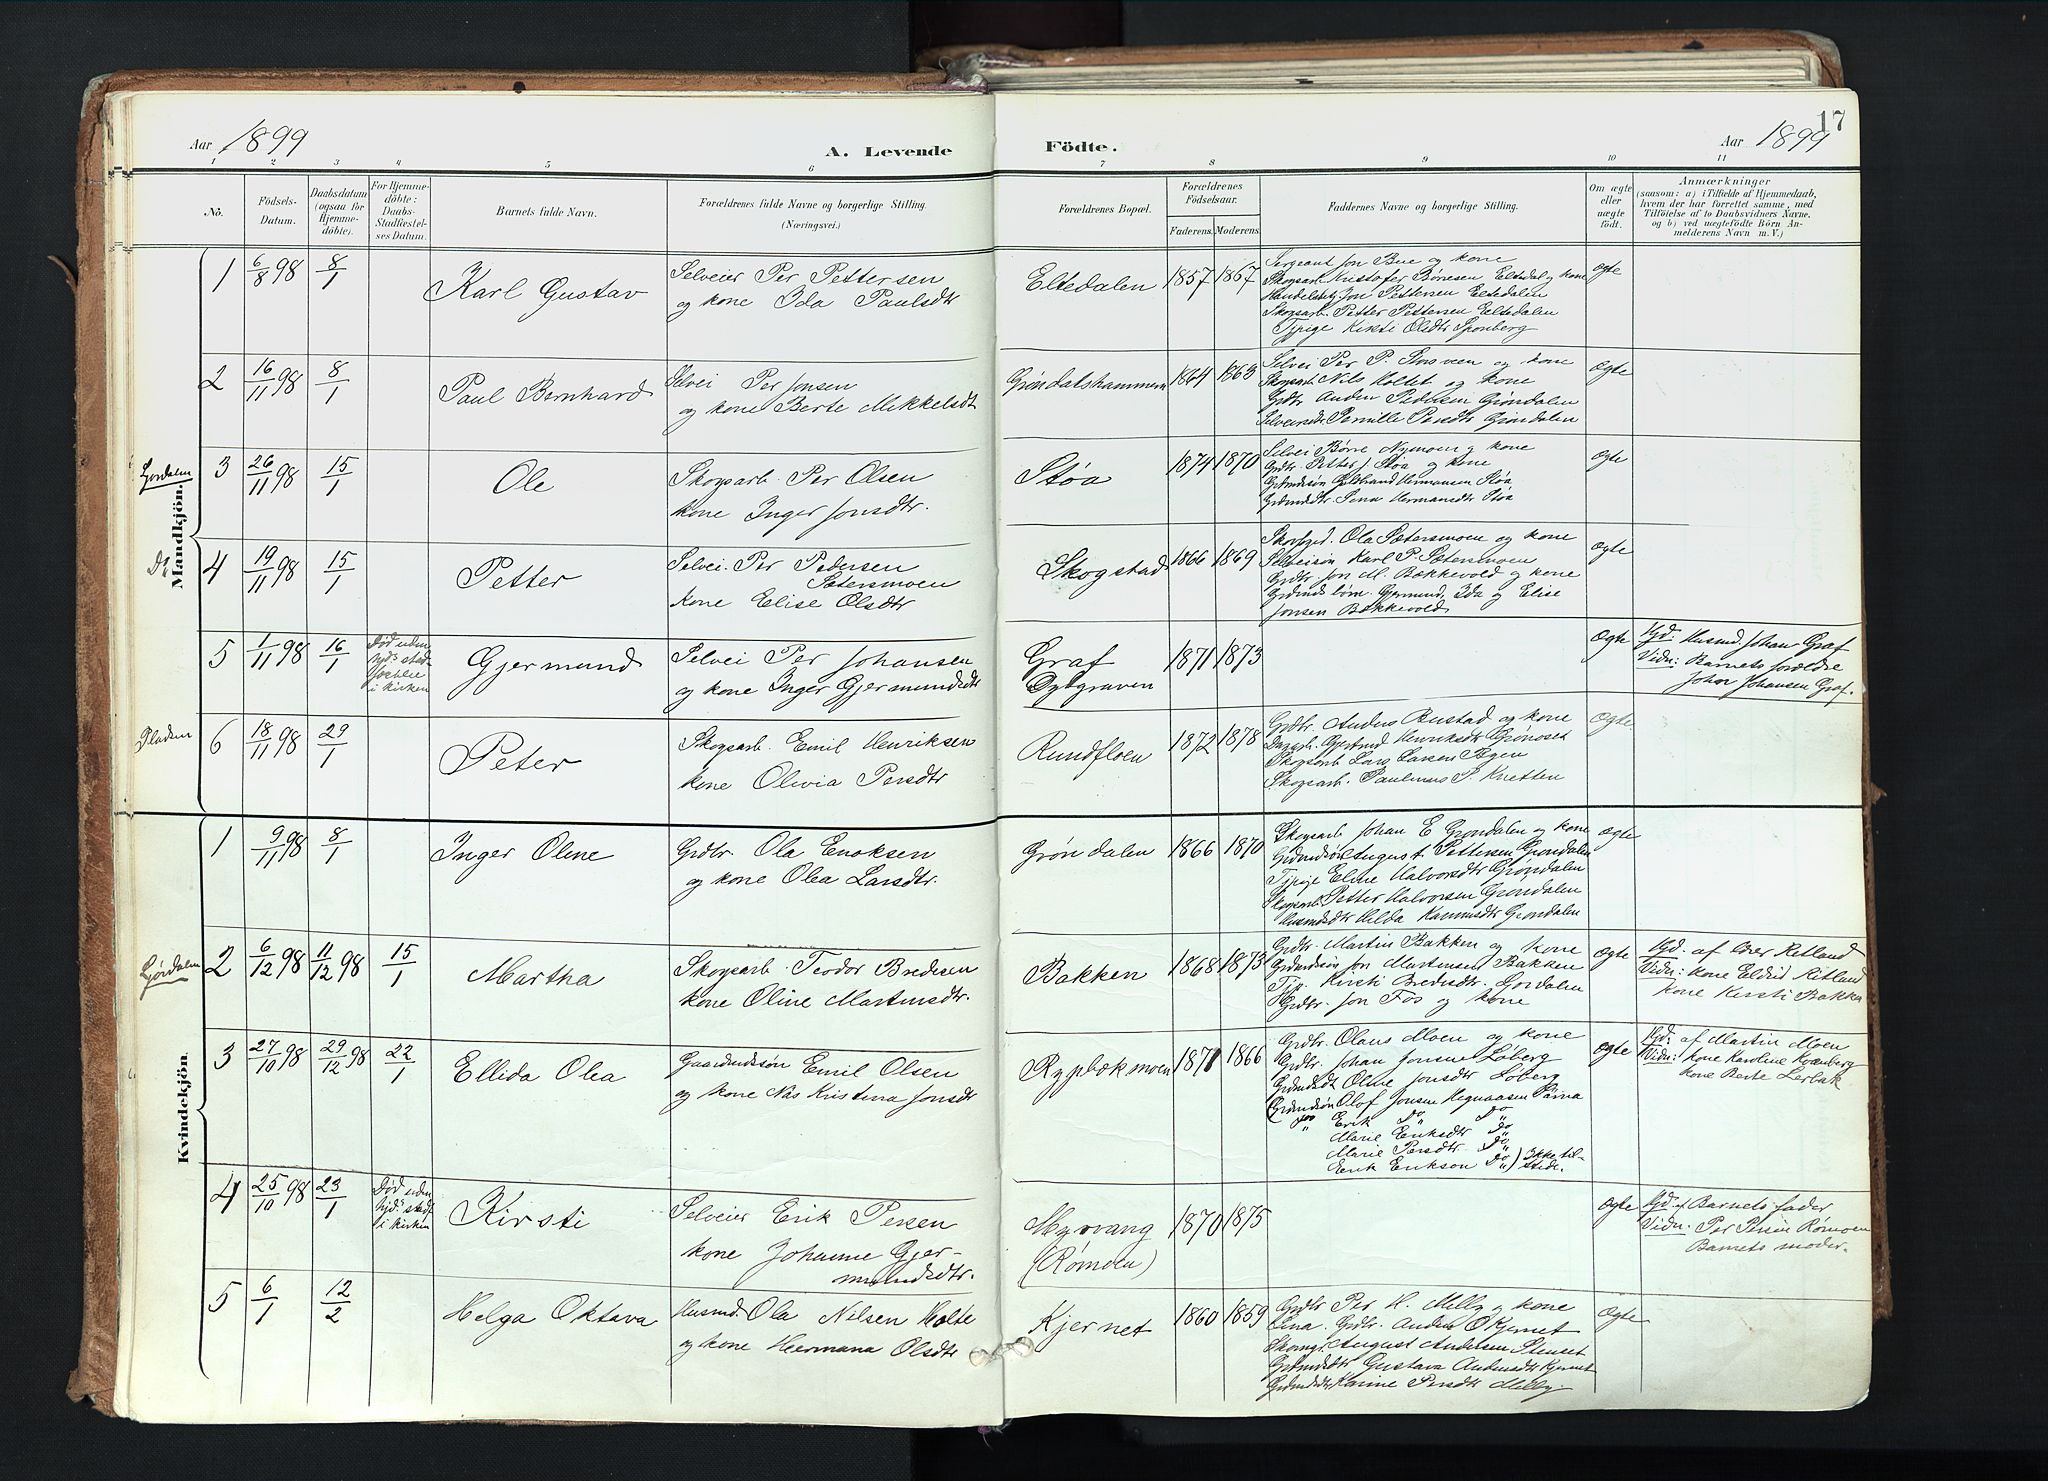 17
Aar 1899
A. Levende
Födte.
Aar 1899
1 2 3 4 5 6 7 8 9 10 11
No.
Födsels-Datum.
Daabsdatum (ogsaa for Hjemme-döbte).
For Hjemme-döbte: Daabs-Stadfæstel-ses Datum.
Barnets fulde Navn.
Forældrenes fulde Navne og borgerlige Stilling.
(Næringsvei.)
Forældrenes Bopæl.
Forældrenes Födselsaar.
Faderens. Moderens.
Faddernes Navne og borgerlige Stilling.
Om ægte eller uægte födt.
Anmærkninger
(saasom: a) i Tilfælde af Hjemmedaab, hvem der har forrettet samme, med Tilföielse af to Daabsvidners Navne, og b) ved uægtefödte Börn An-melderens Navn m. V.)
Mandkjön.
1 6/8 98 8/1 Karl Gustav
Selveier Per Pettersen
og kone Ida Paulsdtr
Eltedalen 1857 1867
Sergeant Jon Bue og kone
Skogsarb Kristofer Børresen Eltedal og kone
Jon Pettersen Eltedalen
Skogsarb. Petter Pettersen Eltedalen
Tjpige Kirsti Olsdtr Sponberg
ægte
2 16/11 98 8/1 Paul Bernhard
Selvei Per Jonsen
og kone Berte Mikkelsdt
Grøndalshammeren 1864 1863
Selvei Per P. Storsveen og kone
Skogsarb. Nils Moltet og kone
Grdbr Anden Pedersen Grøndalen
Selveiersdtr. Pernille Persdtr Grøndalen
ægte
3 26/11 98 15/1 Ole
Skogsarb. Per Olsen
kone Inger Jonsdtr.
Støa 1874 1870
Selvei Børre Nymoen og kone
Grdbr. Petter J. Støa og kone
Grdmdssøn Guldbrand Hermansen Støa
Grdmdsdtr. Lena Hermansdtr Støa
ægte
Ljørdalen
4 19/11 98 15/1 Petter
Selvei. Per Pedersen
Sætersmoen
kone Elise Olsdtr
Skogstad 1866 1869
Ola Sætersmoen og kone
Selveisøn Karl P. Sætersmoen
Grdbr. Jon M. Bækkevold og kone
Grdmds børn. Gjermund, Ida og Elise
Jonsen Bækkevold
ægte
Do
5 1/11 98 16/1
Død uden
hjd: stad-
fæstelse
i kirken
Gjermund
Selvei Per Johansen
og kone Inger Gjermundsdtr
Graf
Dybgraven
1871 1873
ægte
Hjd: Husmd. Johan Graf
Vidn: Barnets forældre
Johan Johansen Graf.
6 18/11 98 29/1 Peter
Skogsarb. Emil Henriksen
kone Olivia Persdtr
Rundfloen 1872 1878
Grdbr Anders Bustad og kone
Gjertrud Henriksdtr Grønoset
Skogsarb Lars Larsen
Skogsarb. Paulinus P. Knetten
ægte
Pladsen
Kvindekjön.
1 9/11 98 8/1 Inger Oline
Grdbr. Ola Enoksen
og kone Olea Larsdtr.
Grøndalen 1866 1870
Skogsarb Johan E Grøndalen og kone
Grdmdssøn August Pettersen Grøndalen
Tjpige Eline Halvorsdtr Grøndalen
Skogsarb. Petter Halvorsen Grøndalen
Husmdsdtr Hilda Grøndalen
ægte
Ljørdalen
2 6/12 98 11/12 98 15/1 Martha
Skogsarb Teodor Bredesen
kone Oline Martinusdtr.
Bakken 1868 1873
Grdbr. Martin Bakken og kone
Grdmdssøn Jon Martinsen Bakken
Tjp. Kirsti Bredesdtr. Ljørdalen
Grdbr. Jon Fos og kone
ægte
Hjd. af Iver Ritland
Vidn: kone Eldrid Ritland
kone Kirsti Bakken
3 27/10 98 29/12 98 22/1 Ellida Olea
Gaardmdssøn Emil Olsen
og kone Kristina Jonsdtr
Rypbækmoen 1871 1866
Grdbr. Olaus Moen og kone
Grdbr. Johan Jonsen Løberg
Grdmdsdt Oline Jonsdtr Løberg
(Grdmdssøn Olof Jonsen Kegnaasen Särna
Do Erik Do Do
Marie Eriksdtr Do
Marie Persdtr. Do
Erik Erikson Do) Ikke til-
stede.
ægte
Hjd: af Martin Moen
Vidn: kone Karoline Kvænberg
kone Berte Lerbak
4 25/10 98 23/1
Død uden
hjd: stadf
i kirken
Kirsti
Selveier Erik Persen
kone Johanne Gjer-
mundsdtr.
Myrvang
(Rømoen)
1870 1875
ægte
Hjd. af Barnets fader
Vidn. Per Persen Rømoen
Barnets moder.
5 6/1 12/2 Helga Oktava
Husmd. Ola Nilsen Holte
og kone Hermana Olsdtr
Kjernet 1860 1859
Grdbr Per H. Melby og kone
Lina. Grdbr. Anders O Kjernet
August Andersen Stenset
Grdmdsdtr Gustava Andersdtr Kjernet
Grdmdsdtr. Karine Persdtr Melby.
ægte